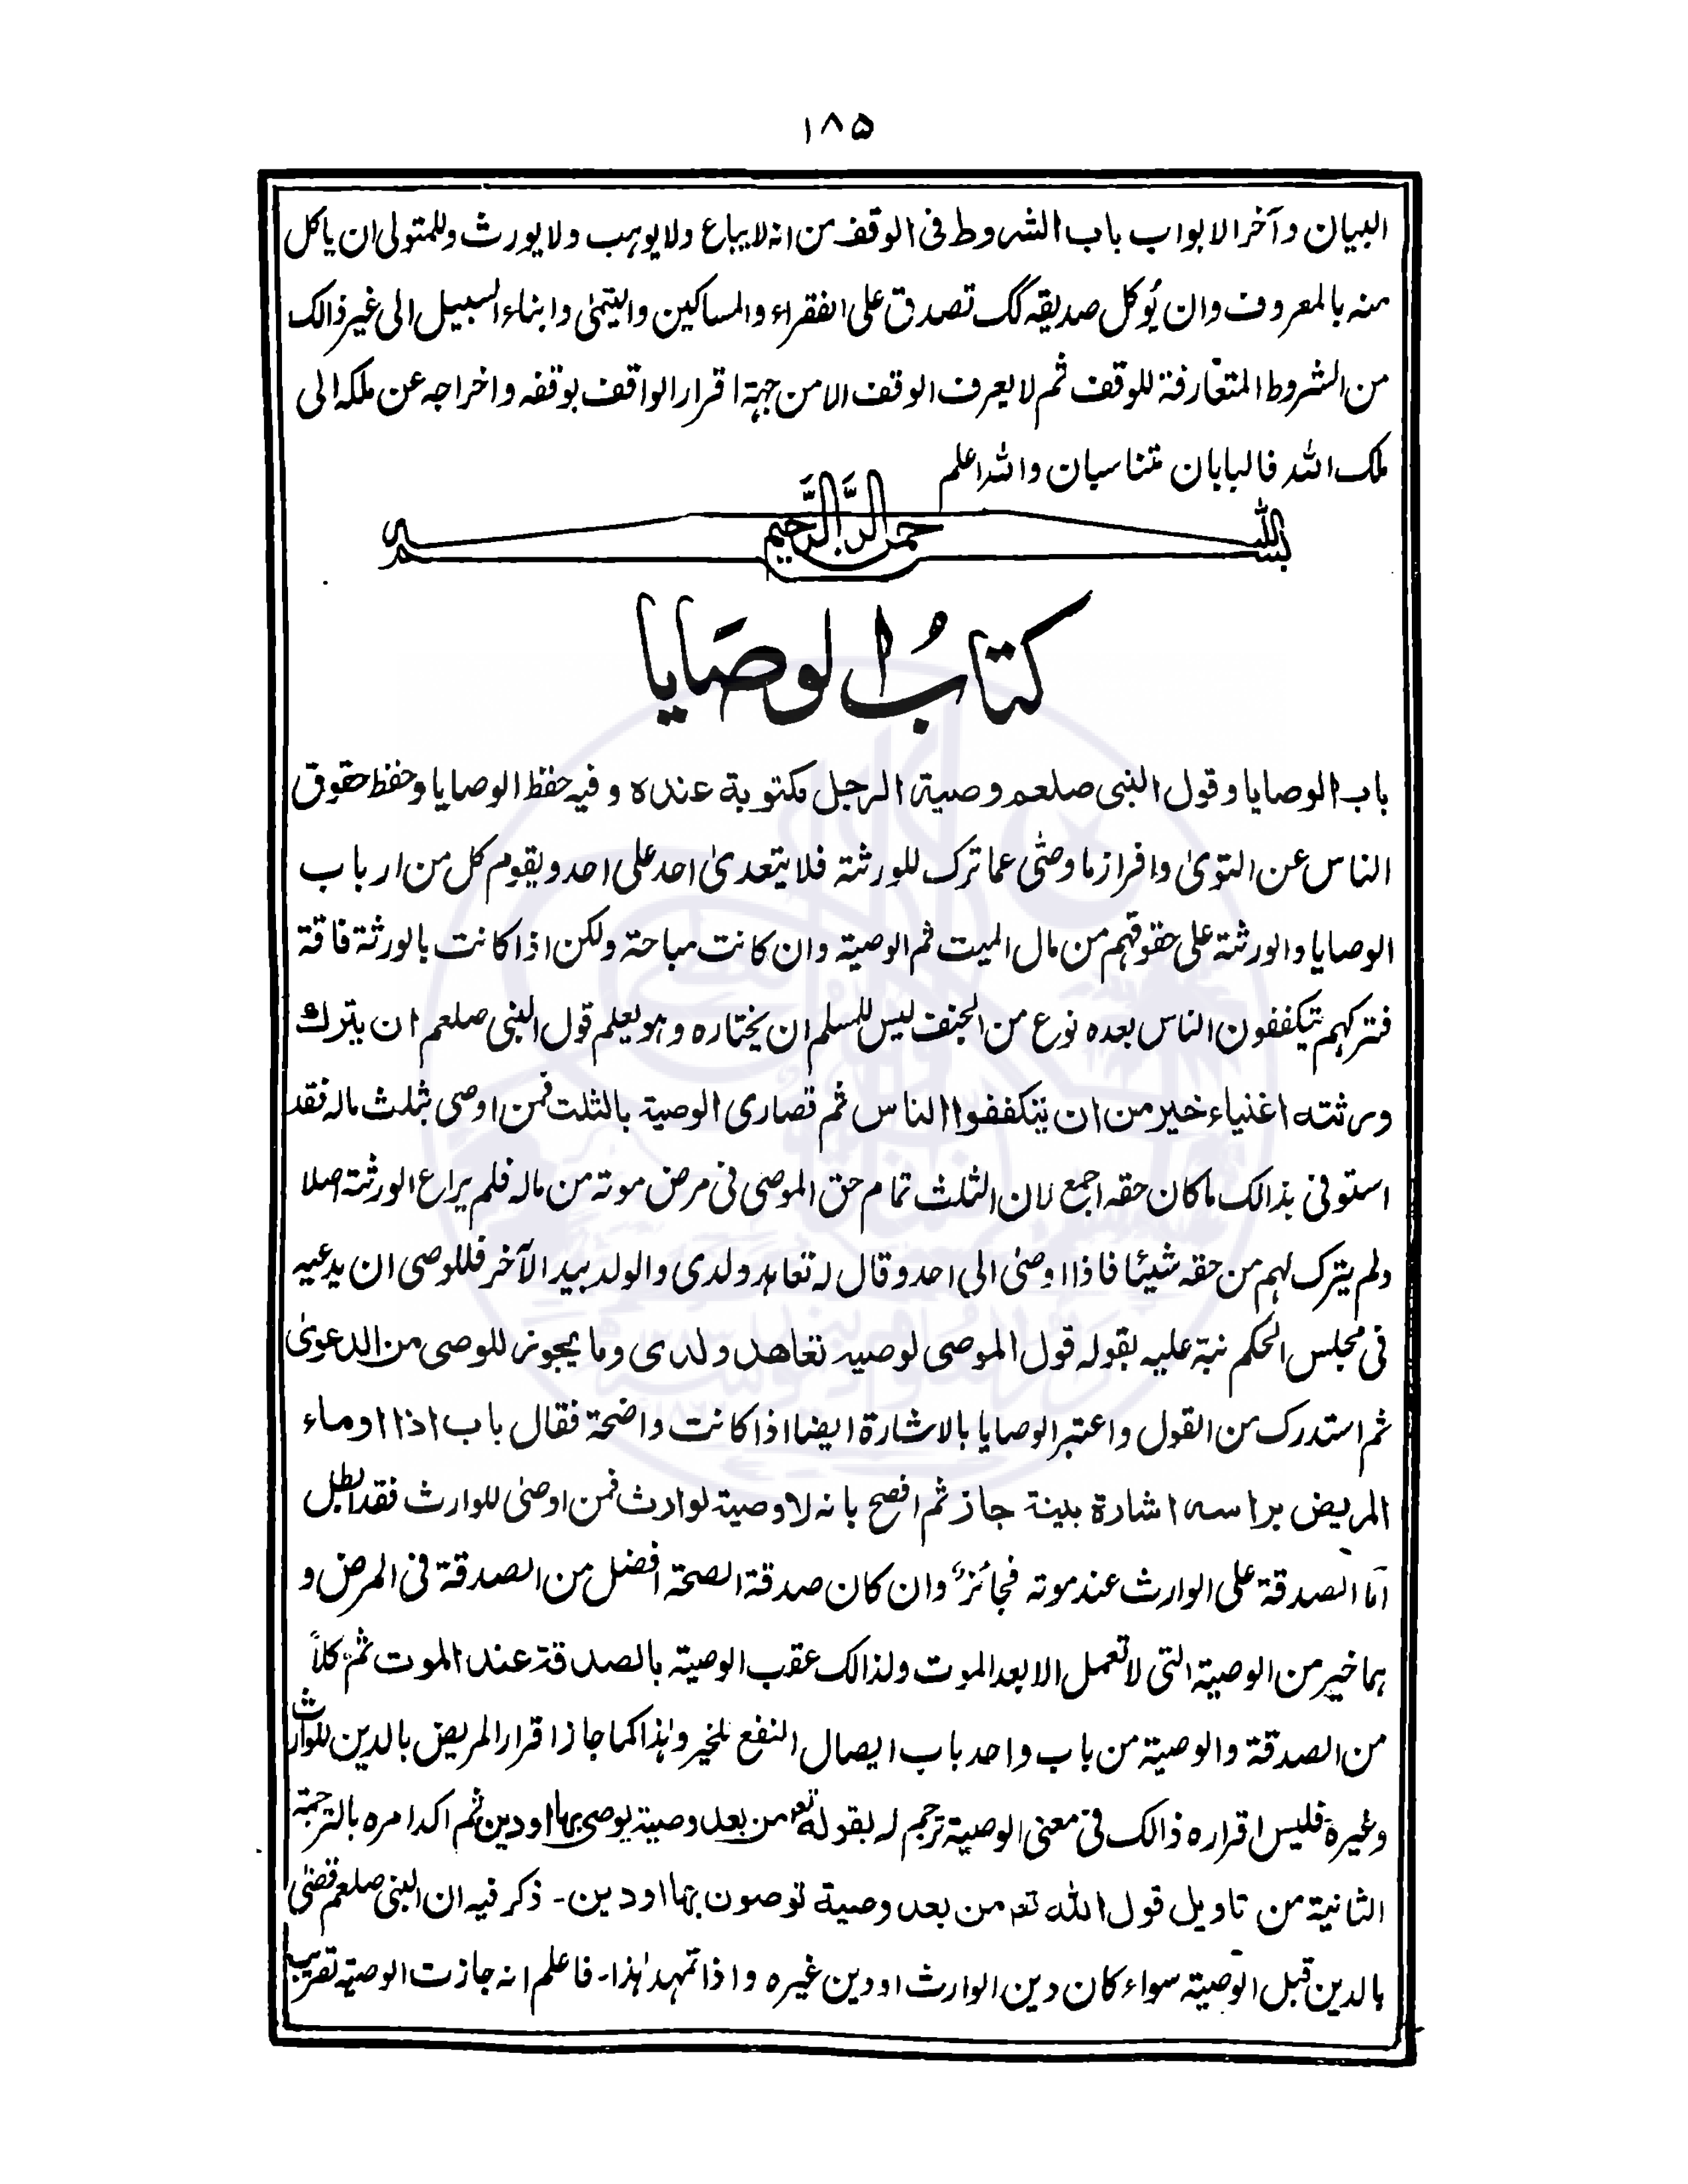 ١٨۵
البيان وآخر الابواب باب الشروط فى الوقف من انه لا يباع ولا يوهب ولا يورث وللمتولى ان ياكل
منه بالمعروف وان يؤكل صديقه كك تصدق على الفقراء والمساكين واليتمىٰ وابناء السبيل الى غير ذالك
من الشروط المتعارفة للوقف ثم لا يعرف الوقف الا من جهة اقرار الواقف بوقفه واخراجه عن ملكه الى
ملك الله فالبابان متناسبان والله اعلم
بسم الله الرحمن الرحيم
كتابُ الوصَايا
باب الوصايا وقول النبى صلعم وصية الرجل مكتوبة عنده وفيه حفظ الوصايا وحفظ حقوق
الناس عن التوىٰ وافراز ما وصّٰى عما ترك للورثة فلا يتعدىٰ احد على احد ويقوم كل من ارباب
الوصايا والورثة على حقوقهم من مال الميت ثم الوصية وان كانت مباحة ولكن اذا كانت بالورثة فاقة
فتركهم يتكففون الناس بعده نوع من الجنف ليس للمسلم ان يختاره وهو يعلم قول النبى صلعم ان يترك
ورثته اغنياء خير من ان يتكففوا الناس ثم قصارى الوصية بالثلث فمن اوصى بثلث ماله فقد
استوفى بذالك ما كان حقه اجمع لان الثلث تمام حق الموصى فى مرض موته من ماله فلم يراع الورثة اصلا
ولم يترك لهم من حقه شيئا فاذا اوصٰى الى احد وقال له تعاهد ولدى والولد بيد الآخر فللوصى ان يدعيه
فى مجلس الحكم نبّه عليه بقوله قول الموصى لوصيه تعاهد ولدى وما يجوز للوصى من الدعوىٰ
ثم استدرك من القول واعتبر الوصايا بالاشارة ايضا اذا كانت واضحة فقال باب اذا اوماء
المريض براسه اشارة بينة جاز ثم افصح بانه لا وصية لوارث فمن اوصٰى للوارث فقد ابطل
اما الصدقة على الوارث عند موته فجائزٌ وان كان صدقة الصحة افضل من الصدقة فى المرض و
هما خير من الوصية التى لا تعمل الا بعد الموت ولذالك عقب الوصية بالصدقة عند الموت ثم كلاً
من الصدقة والوصية من باب واحد باب ايصال النفع للخير وهٰذا كما جاز اقرار المريض بالدين للوارث
وغيره فليس اقراره ذالك فى معنى الوصية ترجم له بقوله تعم من بعد وصية يوصى بها اودين ثم اكد امره بالترجمة
الثانية من تاويل قول الله تعم من بعد وصية توصون بها اودين۔ ذكر فيه ان النبى صلعم قضٰى
بالدين قبل الوصية سواء كان دين الوارث اودين غيره واذا تمهد هٰذا۔ فاعلم انه جازت الوصية تقريب